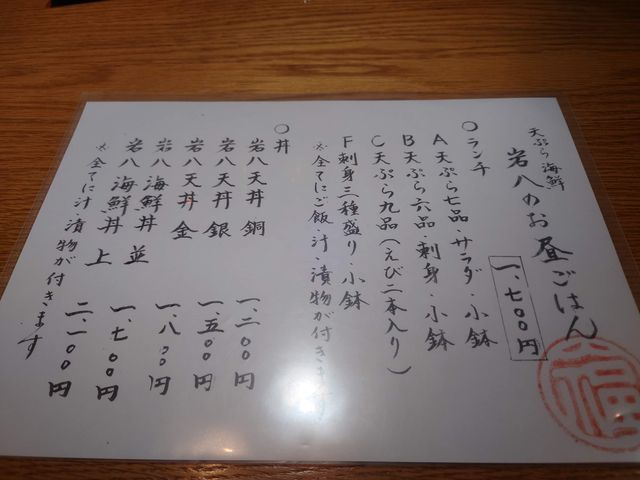 天ぷら海鮮
岩八のお昼ごはん
○ランチ
一、七〇〇円
A 天ぷら七品・サラダ・小鉢
B 天ぷら六品・刺身・小鉢
C 天ぷら九品（えび二本入り）
F 刺身三種盛り・小鉢
※全てにご飯・汁・漬物が付きます
○丼
岩八天丼 銅 一、二〇〇円
岩八天丼 銀 一、五〇〇円
岩八天丼 金 一、八〇〇円
岩八海鮮丼 並 一、七〇〇円
岩八海鮮丼 上 二、一〇〇円
※全てに汁・漬物が付きます
福